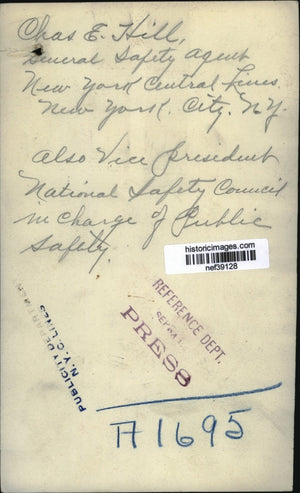 Chas E. Hill,
General Safety Agent
New York Central Lines
New York. City. N.Y.
Also Vice President
National Safety Council
in charge of Public
Safety.
historicimages.com
nef39128
PUBLICITY DEPARTMENT
N. Y. C. LINES
REFERENCE DEPT.
SEP
PRESS
A1695